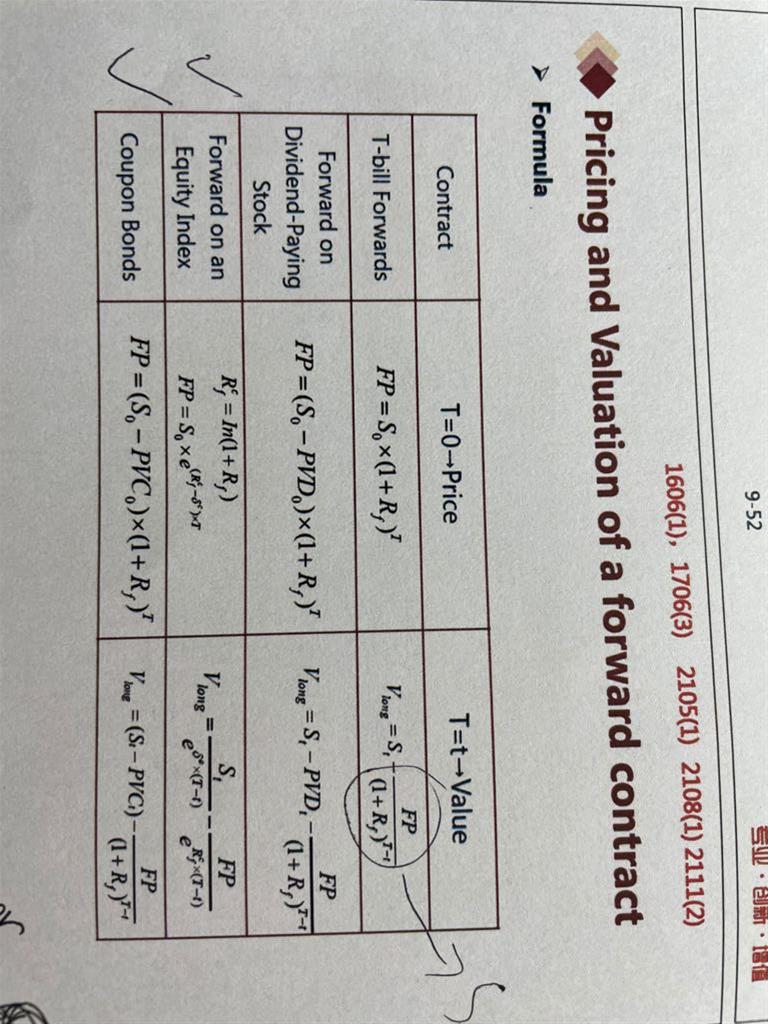 9-52
专业·创新·增值
1606(1), 1706(3) 2105(1) 2108(1) 2111(2)
Pricing and Valuation of a forward contract
➤ Formula
Contract T=0→Price T=t→Value
T-bill Forwards FP = S₀×(1+R_f)^T V_long = S_t − FP/(1+R_f)^(T−t)
Forward on
Dividend-Paying
Stock
FP = (S₀ − PVD₀)×(1+R_f)^T V_long = S_t − PVD_t − FP/(1+R_f)^(T−t)
Forward on an
Equity Index
R_f^c = In(1+R_f)
FP = S₀×e^((R_f^c−δ^c)×T) V_long = S_t/e^(δ^c×(T−t)) − FP/e^(R_f^c×(T−t))
Coupon Bonds FP = (S₀ − PVC₀)×(1+R_f)^T V_long = (S_t − PVC_t) − FP/(1+R_f)^(T−t)